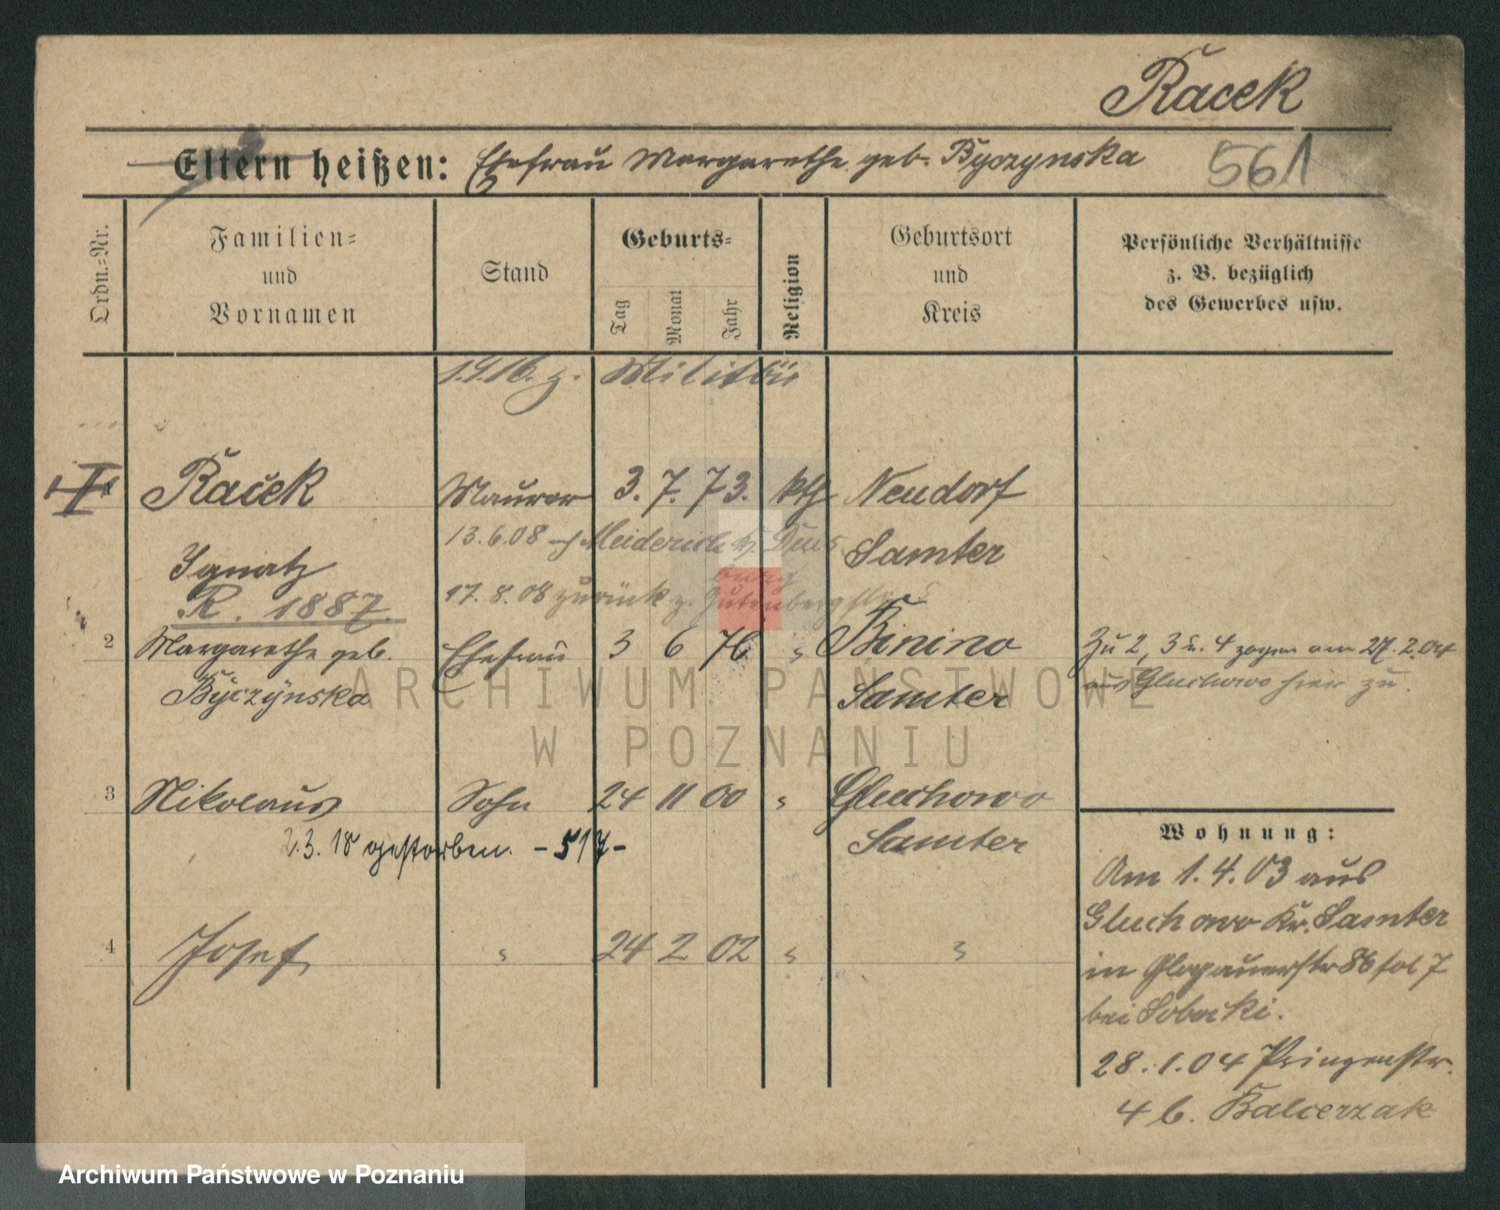 Racek
Eltern heißen: Ehefrau Margarethe geb. Byczynska 561
Ordn.-Nr.
Familien-
und
Vornamen
Stand
Geburts-
Tag
Monat
Jahr
Religion
Geburtsort
und
Kreis
Persönliche Verhältnisse
z. B. bezüglich
des Gewerbes usw.
z. Militär
Raček Maurer 3. 7. 73. kth Neudorf
Samter
13.6.08 Meiderich Duis
burg
Ignatz
17. 8. 08 zurück z. Gutenbergstr
R. 1887.
2 Margarethe geb. Ehefrau 3 6 76 " Binino
Byczynska Samter
Zu 2, 3 u. 4 zogen am 27. 2. 04
aus Gluchowo hier zu.
ARCHIWUM PAŃSTWOWE
W POZNANIU
3 Nikolaus Sohn 24 11 00 " Gluchowo
Samter
2.3.18 gestorben. - 517 -
4 Josef " 24 2 02 " "
Wohnung:
Am 1. 4. 03 aus
Gluchowo Kr. Samter
in Glogauerstr 86 fol 7
bei
28. 1. 04 Prinzenstr.
4 b. Balcerzak
Archiwum Państwowe w Poznaniu